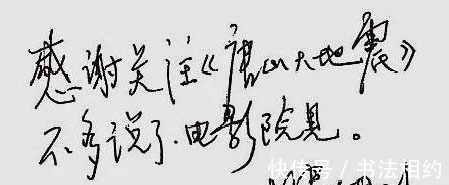 感谢关注《唐山大地震》
不多说了.电影院见。
快传号/书法相约